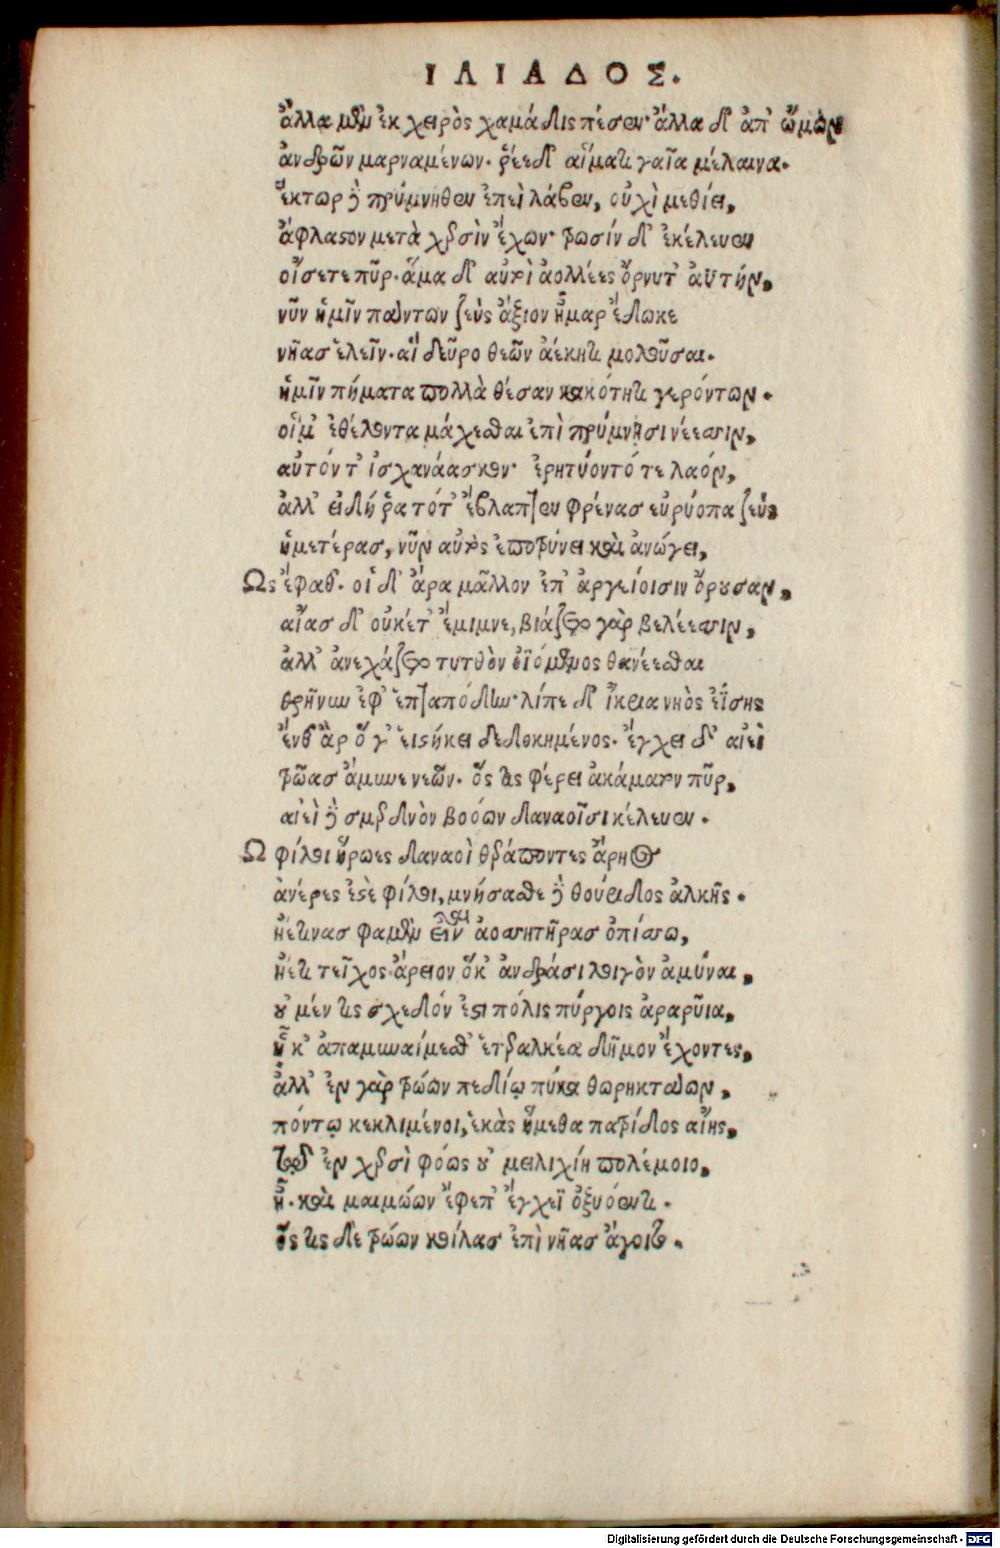 ΙΛΙΑΔΟΣ.
ἄλλα μὲν ἐκ χειρὸς χαμάδις πέσεν· ἄλλα δ' ἀπ' ὤμων
ἀνδρῶν μαρναμένων. ῥέε δ' αἵματι γαῖα μέλαινα.
ἕκτωρ δὲ πρύμνηθεν ἐπεὶ λάβεν, οὐχὶ μεθίει,
ἄφλαστον μετὰ χερσὶν ἔχων· τρωσίν δ' ἐκέλευεν
οἴσετε πῦρ. ἅμα δ' αὐτοὶ ἀολλέες ὄρνυτ' ἀϋτήν,
νῦν ἡμῖν πάντων ζεὺς ἄξιον ἦμαρ ἔδωκε
νῆας ἑλεῖν. αἳ δεῦρο θεῶν ἀέκητι μολοῦσαι.
ἡμῖν πήματα πολλὰ θέσαν κακότητι γερόντων.
οἵ μ' ἐθέλοντα μάχεσθαι ἐπὶ πρύμνῃσι νέεσσιν,
αὐτόν τ' ἰσχανάασκον· ἐρητύοντό τε λαόν,
ἀλλ' εἰ δή ῥα τότ' ἔβλαπτεν φρένας εὐρύοπα ζεὺς
ἡμετέρας, νῦν αὐτὸς ἐποτρύνει καὶ ἀνώγει,
Ὣς ἔφαθ'. οἱ δ' ἄρα μᾶλλον ἐπ' ἀργείοισιν ὄρουσαν,
αἴας δ' οὐκέτ' ἔμιμνε, βιάζετο γὰρ βελέεσσιν,
ἀλλ' ἀνεχάζετο τυτθὸν ὀϊόμενος θανέεσθαι
θρῆνυν ἐφ' ἑπταπόδην· λίπε δ' ἴκρια νηὸς ἐΐσης
ἔνθ' ἂρ ὅ γ' εἱστήκει δεδοκημένος. ἔγχει δ' αἰεὶ
τρῶας ἄμυνε νεῶν. ὅς τις φέρει ἀκάματον πῦρ,
αἰεὶ δὲ σμερδνὸν βοόων δαναοῖσι κέλευεν.
Ω φίλοι ἥρωες δαναοὶ θεράποντες ἄρηος
ἀνέρες ἐστὲ φίλοι, μνήσασθε δὲ θούριδος ἀλκῆς.
ἠέ τινας φαμὲν εἶναι ἀοσσητῆρας ὀπίσσω,
ἠέ τι τεῖχος ἄρειον ὅ κ' ἀνδράσι λοιγὸν ἀμύναι,
οὐ μέν τις σχεδόν ἐστι πόλις πύργοις ἀραρῦια,
ᾗ κ' ἀπαμυναίμεσθ' ἑτεραλκέα δῆμον ἔχοντες,
ἀλλ' ἐν γὰρ τρώων πεδίῳ πύκα θωρηκτάων,
πόντῳ κεκλιμένοι, ἑκὰς ἥμεθα πατρίδος αἴης,
τῷ ἐν χερσὶ φόως οὐ μειλιχίη πολέμοιο,
ἦ. καὶ μαιμώων ἔφεπ' ἔγχεϊ ὀξυόεντι.
ὅς τις δὲ τρώων κοίλας ἐπὶ νῆας ἄγοιτο.
Digitalisierung gefördert durch die Deutsche Forschungsgemeinschaft - DFG